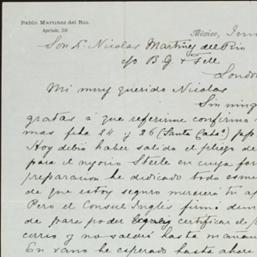 Pablo Martinez del Rio.
Apartado, 
México,
Son Dn Nicolas Martinez del Rio
c/o B G & Fell
London
Mi muy querido Nicolas
Sin
gratas a que referirme confirmo
mas fha 24 y 26 (Santa Cata)
Hoy debió haber salido el pliego de
para el nyorio Steele en cuya
preparacion he dedicado todo
de que estoy seguro merecerá tu
Pero el Consul Inglés firmó
de para poder legaliz certificar de
correo y no saldrá hasta mañana
En vano he esperado hasta ahora